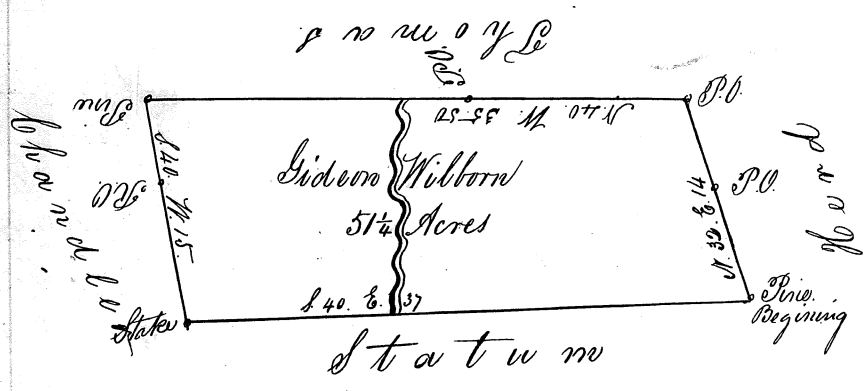 Thomas
P.O.
Pine
N. 40. W. 35.50
P.O.
Chandler
R.O.
S 40. W. 15.
Gideon Wilborn
51¼ Acres
N. 32. E. 14
P.O.
Herd
S. 40. E. 37
Stake
Pine.
Begining
Statum